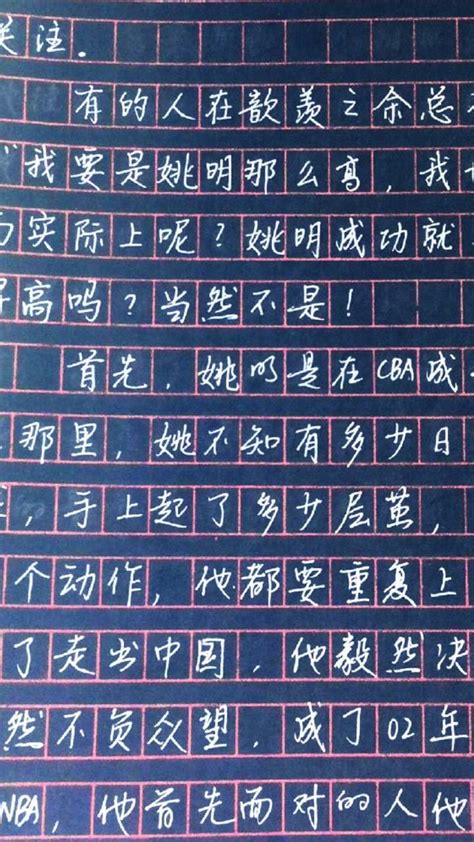 关注.
有的人在歆羡之余,总
"我要是姚明那么高,我
实际上呢?姚明成功就
高吗?当然不是!
首先,姚明是在CBA成
那里,姚不知有多少日
,手上起了多少层茧,
个动作,他都要重复上
了走出中国,他毅然决
然不负众望,成了02年
NBA,他首先面对的人他